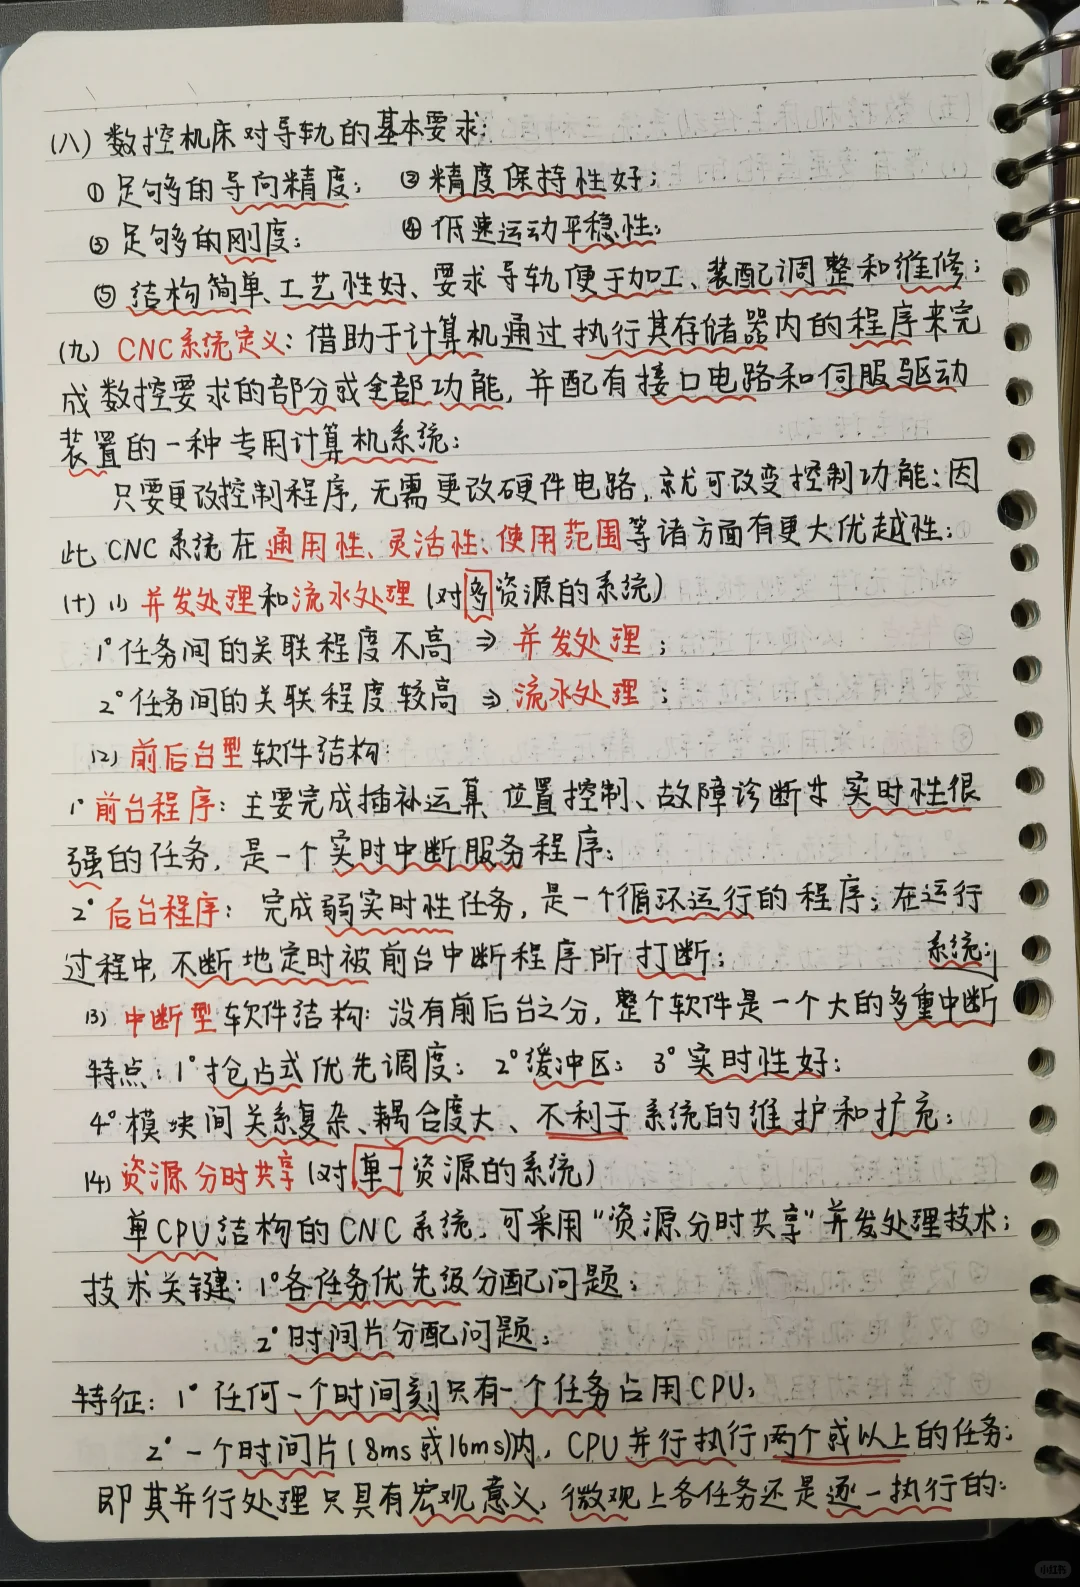 (八) 数控机床对导轨的基本要求:
① 足够的导向精度; ② 精度保持性好;
③ 足够的刚度; ④ 低速运动平稳性;
⑤ 结构简单、工艺性好、要求导轨便于加工、装配调整和维修;
(九) CNC系统定义: 借助于计算机通过执行其存储器内的程序来完
成数控要求的部分或全部功能, 并配有接口电路和伺服驱动
装置的一种专用计算机系统;
只要更改控制程序, 无需更改硬件电路, 就可改变控制功能; 因
此 CNC 系统在通用性、灵活性、使用范围等诸方面有更大优越性;
(十) (1) 并发处理和流水处理 (对多资源的系统)
1° 任务间的关联程度不高 ⇒ 并发处理;
2° 任务间的关联程度较高 ⇒ 流水处理;
(2) 前后台型软件结构:
1° 前台程序: 主要完成插补运算、位置控制、故障诊断等实时性很
强的任务, 是一个实时中断服务程序;
2° 后台程序: 完成弱实时性任务, 是一个循环运行的程序; 在运行
过程中, 不断地定时被前台中断程序所打断;
(3) 中断型软件结构: 没有前后台之分, 整个软件是一个大的多重中断
系统;
特点: 1° 抢占式优先调度; 2° 缓冲区; 3° 实时性好;
4° 模块间关系复杂、耦合度大、不利于系统的维护和扩充;
(4) 资源分时共享 (对单一资源的系统)
单CPU结构的CNC系统, 可采用“资源分时共享”并发处理技术;
技术关键: 1° 各任务优先级分配问题;
2° 时间片分配问题;
特征: 1° 任何一个时间刻只有一个任务占用CPU;
2° 一个时间片(8ms或16ms)内, CPU并行执行两个或以上的任务;
即其并行处理只具有宏观意义, 微观上各任务还是逐一执行的;
小红书